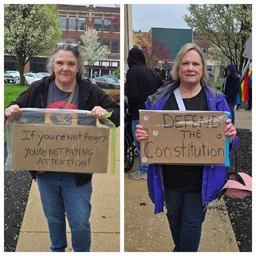 If you're Not Angry
you're NOT PAYING
ATTENTION!
DEFEND
THE
Constitution